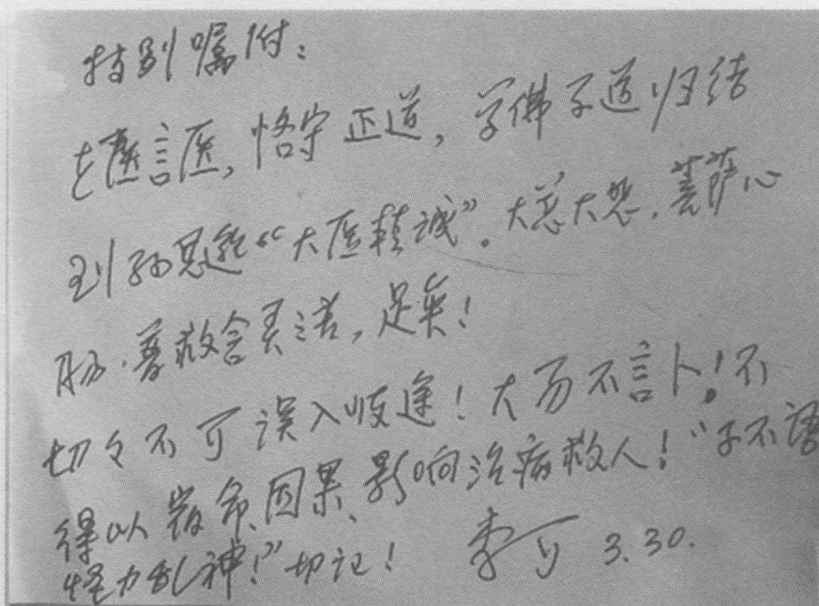 特别嘱咐:
在医言医,恪守正道,学佛学道归结
到孙思邈“大医精诚”。大慈大悲,菩萨心
肠,普救含灵之苦,足矣!
切々不可误入歧途!大易不言卜!不
得以宿命、因果、影响治病救人!“子不语
怪力乱神!”切记! 李可 3.30.